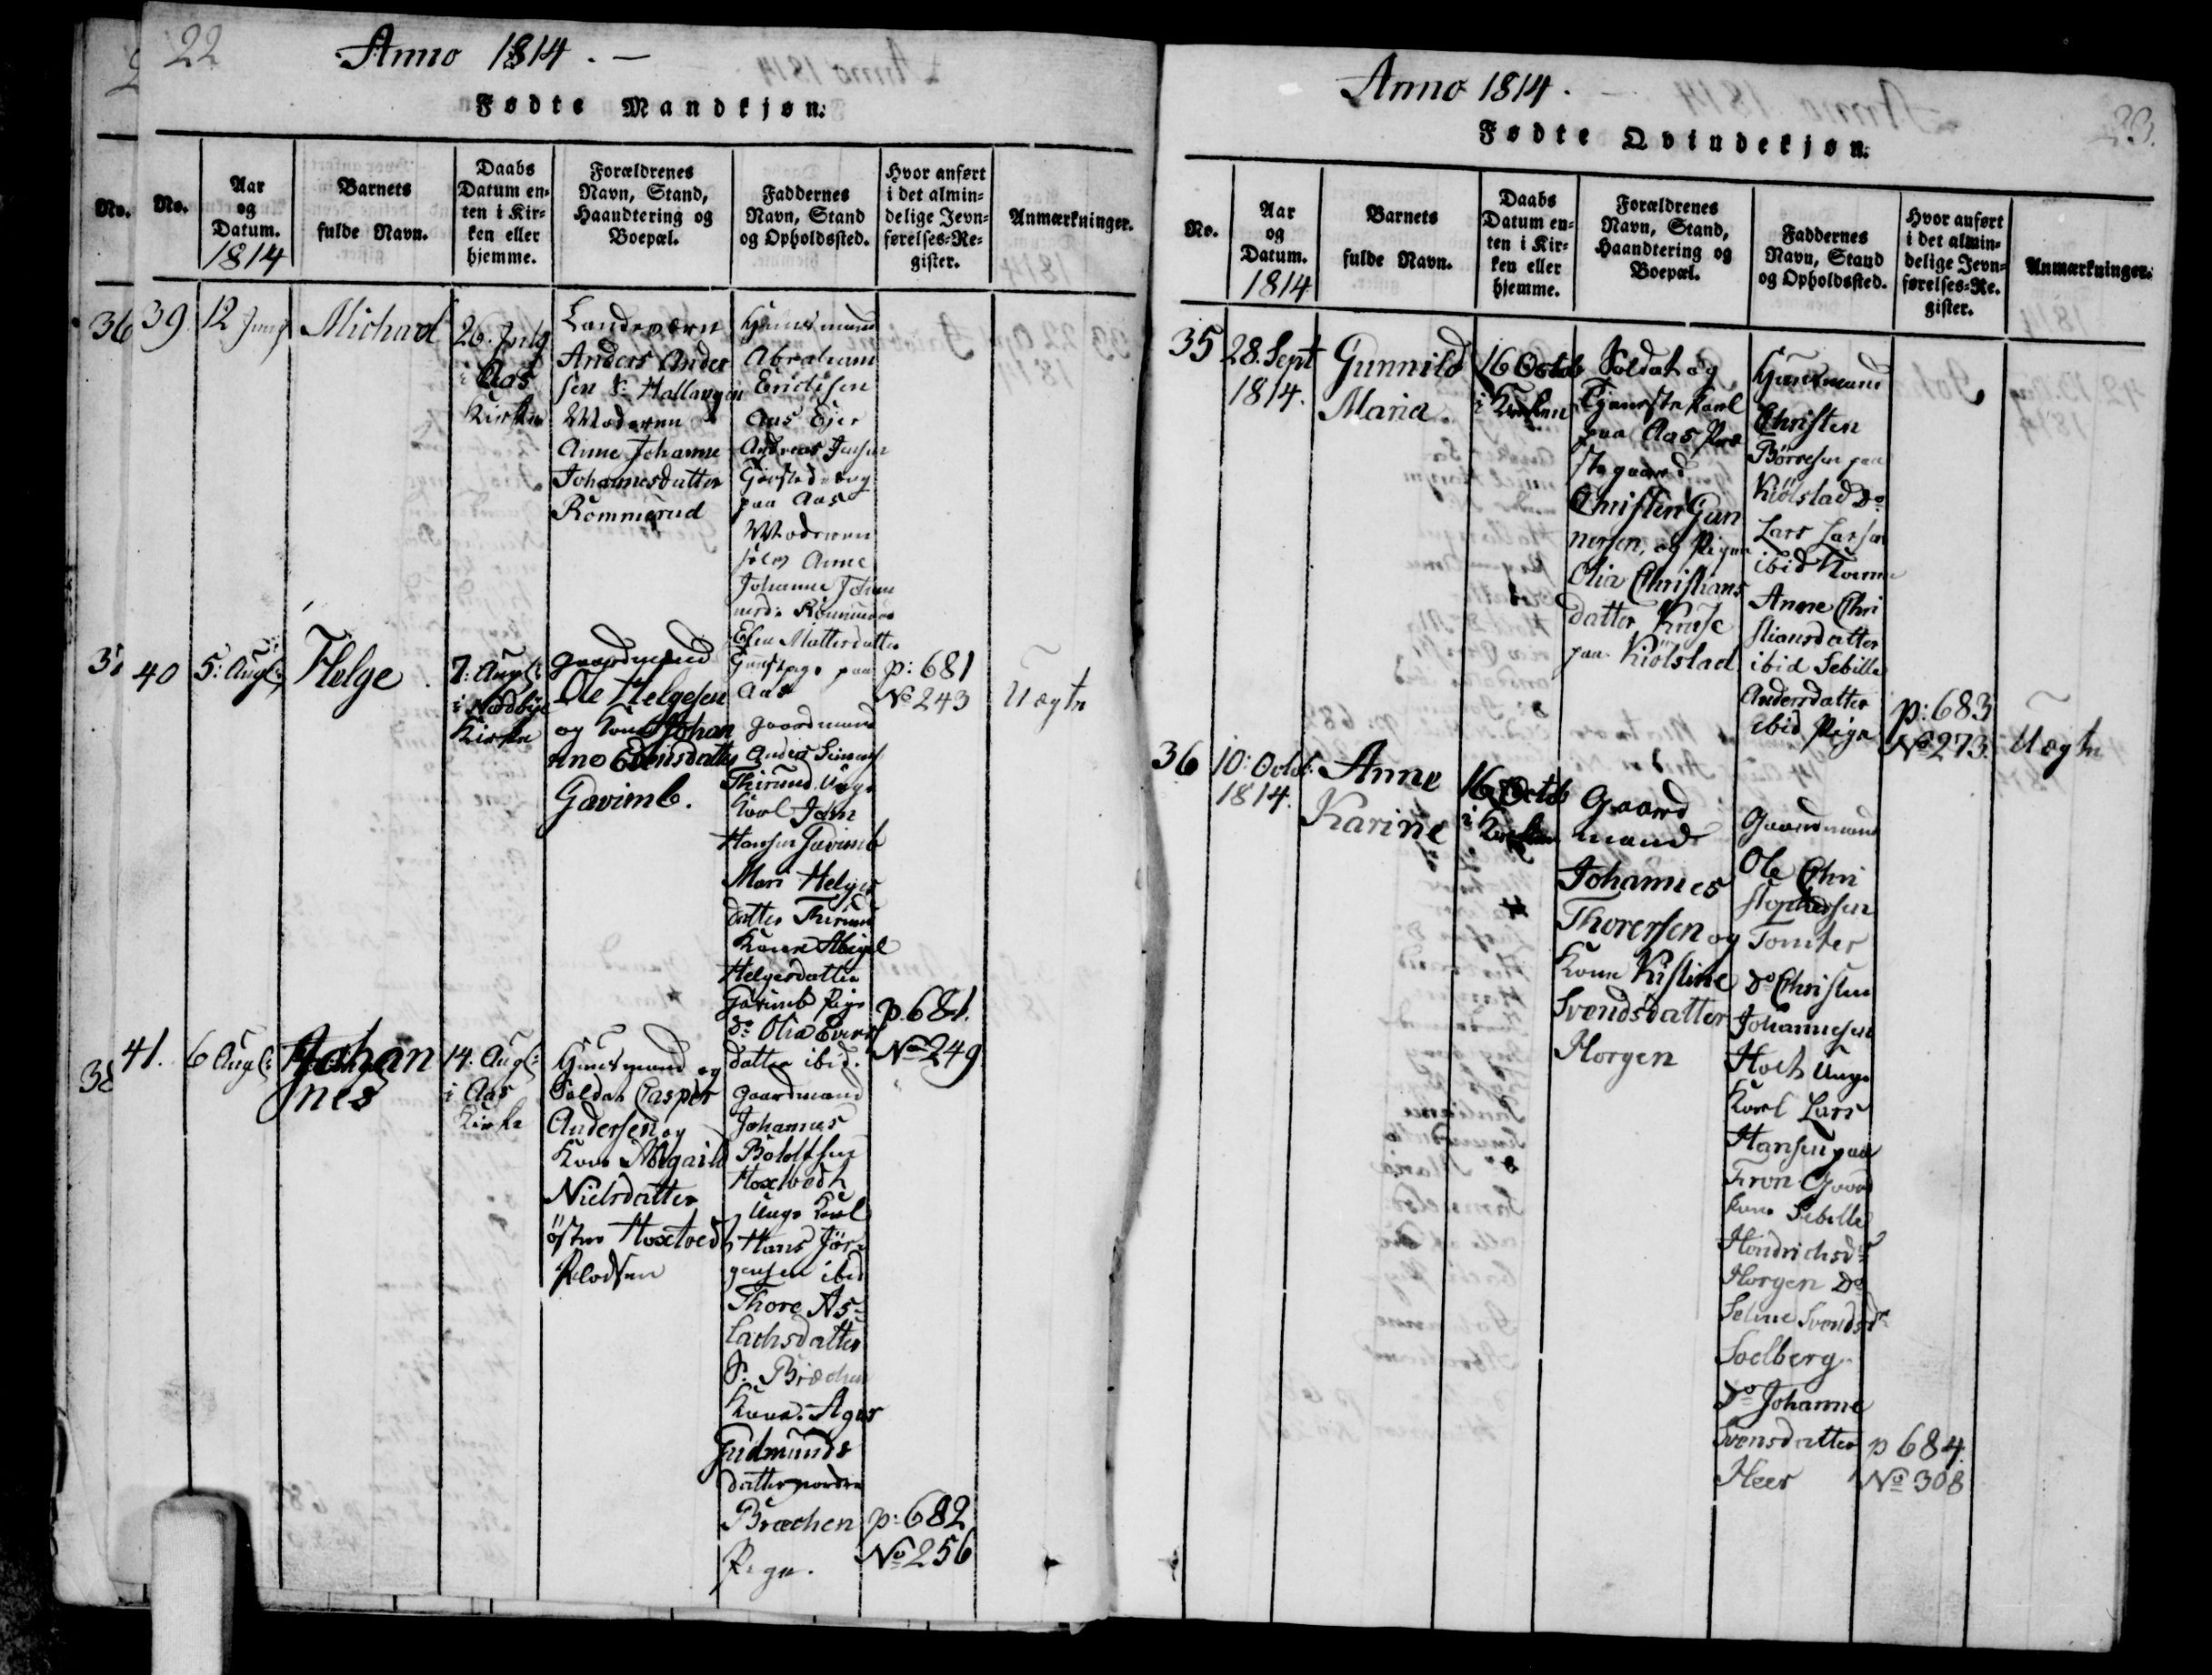 22
Anno 1814. —
Fødte Mandkjøn.
No.
No.
Aar
og
Datum.
1814
Barnets
fulde Navn.
Daabs
Datum en-
ten i Kir-
ken eller
hjemme.
Forældrenes
Navn, Stand,
Haandtering og
Boepæl.
Faddernes
Navn, Stand
og Opholdssted.
Hvor anført
i det almin-
delige Jevn-
førelses-Re-
gister.
Anmærkninger.
36
39
12 Juny
Michael
26. July
i Aas
Kirke
Landeværn
Anders Ander
sen Hallangen
Moderen
Anne Johanne
Johannesdatter
Rommerud
Huusmand
Abraham
Erichsen
Aas Ejer
Andreas Jensen
paa Aas
Moderen
selv Anne
Johanne
40
5: Aug:
Helge
7: Aug:
i Nordbye
Kirke
Gaardmand
Ole Helgesen
og Kone Johan
ne Evensdatter
Gavimb.
paa
Aas
Gaardmand
Anders
Thirund Unge
Karl John
Hansen Gavimb
Mari Helges
datter Thirund
Kone Abigel
Helgesdatter
Gavimb Pige
Do Olia Evens
datter ibid.
p: 681
No 243
Uægte
p. 681.
No 249
38
41.
6 Aug:
Johan
nes
14. Aug:
i Aas
Kirke
Huusmand og
Soldat Casper
Andersen og
Kone Abigail
Nielsdatter
østre Hoxtvedt
Pladsen
Gaardmand
Johannes
Hoxtvedt
Unge Karl
Hans Jør-
gensen ibid
Thore As-
lachsdatter
Kone Agnes
Gudmunds
datter nordre
Bræchen
Pige.
p: 682
No 256
Anno 1814.
23.
Fødte Qvindekjøn.
No.
Aar
og
Datum.
1814
Barnets
fulde Navn.
Daabs
Datum en-
ten i Kir-
ken eller
hjemme.
Forældrenes
Navn, Stand,
Haandtering og
Boepæl.
Faddernes
Navn, Stand
og Opholdssted.
Hvor anført
i det almin-
delige Jevn-
førelses-Re-
gister.
Anmærkninger.
35
28. Sept
1814.
Gunnild
Maria.
16 Octob
i Kirken
Soldat og
Tjenestekarl
paa Aas Præ
stegaard
Christen Gun
nersen, og Pigen
Olia Christians
datter Kruse
paa Kiölstad
Huusmand
Christen
Börresen paa
Kiölstad Do
Lars Larsen
ibid Konen
Anne Chri
stiansdatter
ibid Sebille
Andersdatter
ibid Pige
p: 683
No 273.
Uægte
36
10: Octob:
1814.
Anne
Karine
16 Octob
i Kirken
Gaard
mand
Johannes
Thorersen og
Kone Kistine
Svendsdatter
Horgen
Gaardmand
Ole Chri
stophersen
Tomter
Do Christen
Johannesen
Holt Unge
Karl Lars
Hansen paa
Fron Gaard
Kone Sebille
Hendrichsdr
Horgen Do
Seline Svendsdr
Soelberg
Do Johanne
Svensdatter
Heer
p 684.
No 308